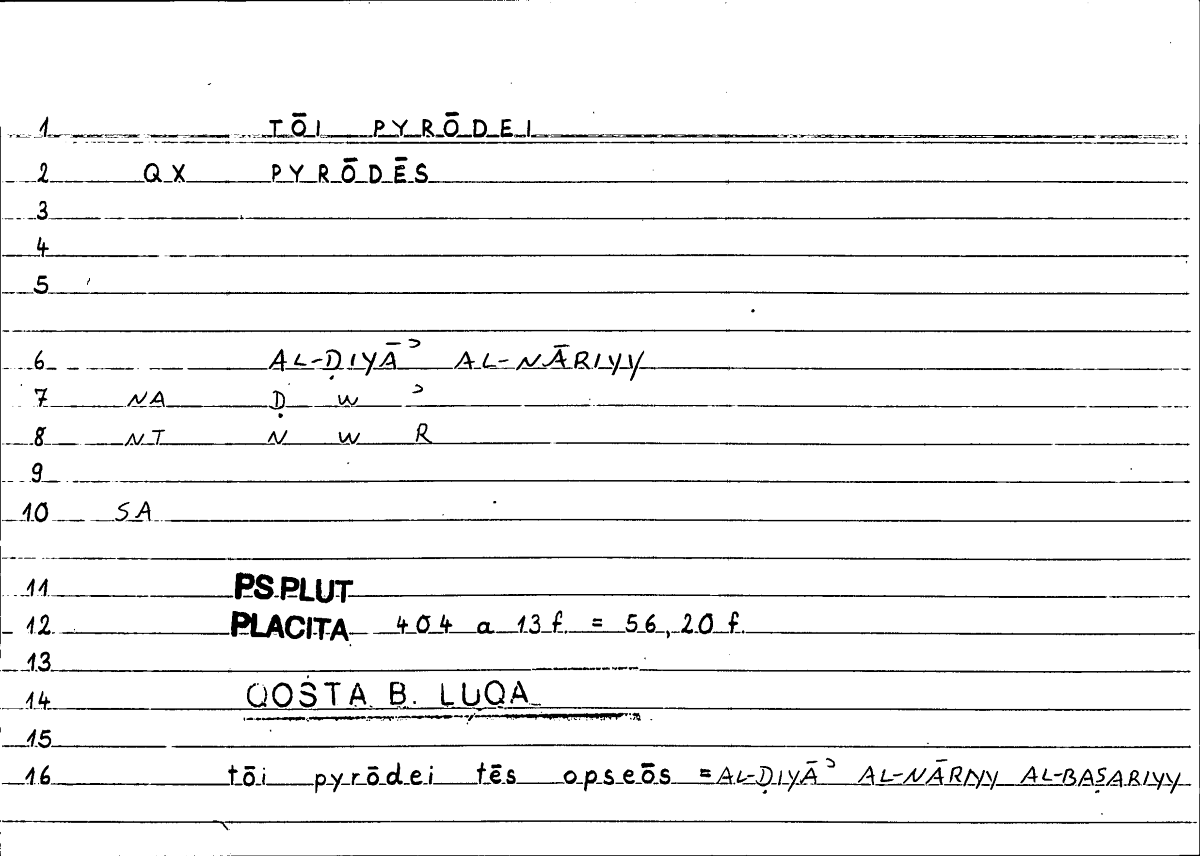 1 TŌI PYRŌDEI
2 QX PYRŌDĒS
3
4
5
6 AL-ḌIYĀʾ AL-NĀRIYY
7 NA Ḍ W ʾ
8 NT N W R
9
10 SA
11 PS.PLUT
12 PLACITA 404 a 13 f. = 56,20 f.
13
14 QOSṬA B. LUQA
15
16 tōi pyrōdei tēs opseōs = AL-ḌIYĀʾ AL-NĀRIYY AL-BAṢARIYY